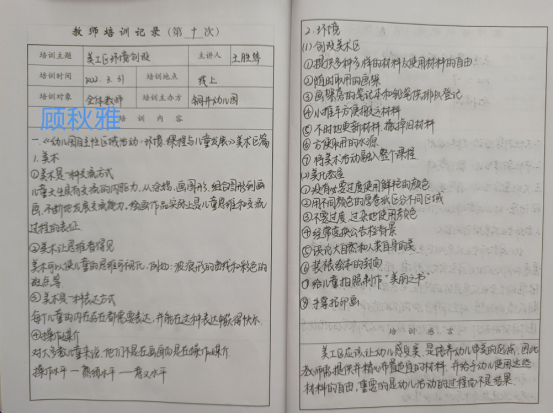 教师培训记录(第 9 次)
培训主题 美工区环境创设 主讲人 王胜
培训时间 2022.3.31 培训地点 线上
培训对象 全体教师 培训主办方 铜井幼儿园
顾秋雅
培训内容
一.《幼儿园自主性区域活动·环境·课程与儿童发展》美术区篇
1.美术
①美术是一种交流方式
儿童天生具有交流的内驱力,从涂鸦、画图形、组合图形到画
画,不断地发展交流能力,绘画作品实际上是儿童思维和交流
过程的表征
②美术让思维看得见
美术可以使儿童的思维可视化,例如:波浪形的曲线和彩色的
斑点等
③美术是一种表达方式
每个儿童的内在存在都需要表达,并能在这种表达中获得快乐.
④操作媒介
对大多数儿童来说,他们不是在画画而是在操作媒介
操作水平——熟练水平——意义水平
2.环境
(1)创设美术区
①提供多种多样的材料以及使用材料的自由
②随时取用的画架
③画架旁的笔记本和铅笔供排队登记
④小推车方便搬运材料
⑤不时地更新材料,撤掉旧材料
⑥方便取用的水源
⑦将美术活动融入整个课程
(2)美化教室
①没有必要过度使用鲜艳的颜色
②用不同颜色的屋卷纸区分不同区域
③不要过度、过杂地使用颜色
④经常更换公告栏背景
⑤谈论大自然和人类自身的美
⑥装裱绘本的封面
⑦给儿童拍照制作"美丽之书"
⑧手掌拓印画
培训感言
美工区应该让幼儿感受美,是培养幼儿审美的区域,因此
教师需提供并精心布置适宜的材料,并给予幼儿使用这些
材料的自由,重要的是幼儿活动的过程而不是结果.